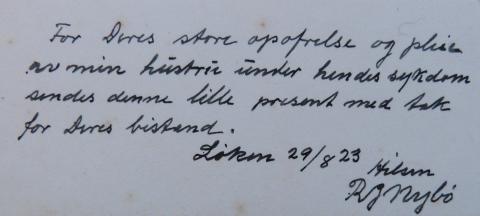 For Deres store opofrelse og pleie
av min hustrie under hendes sykdom
sendes denne lille present med tak
for Deres bistand.
Løken 29/8 23
Hilsen
R J Nybö